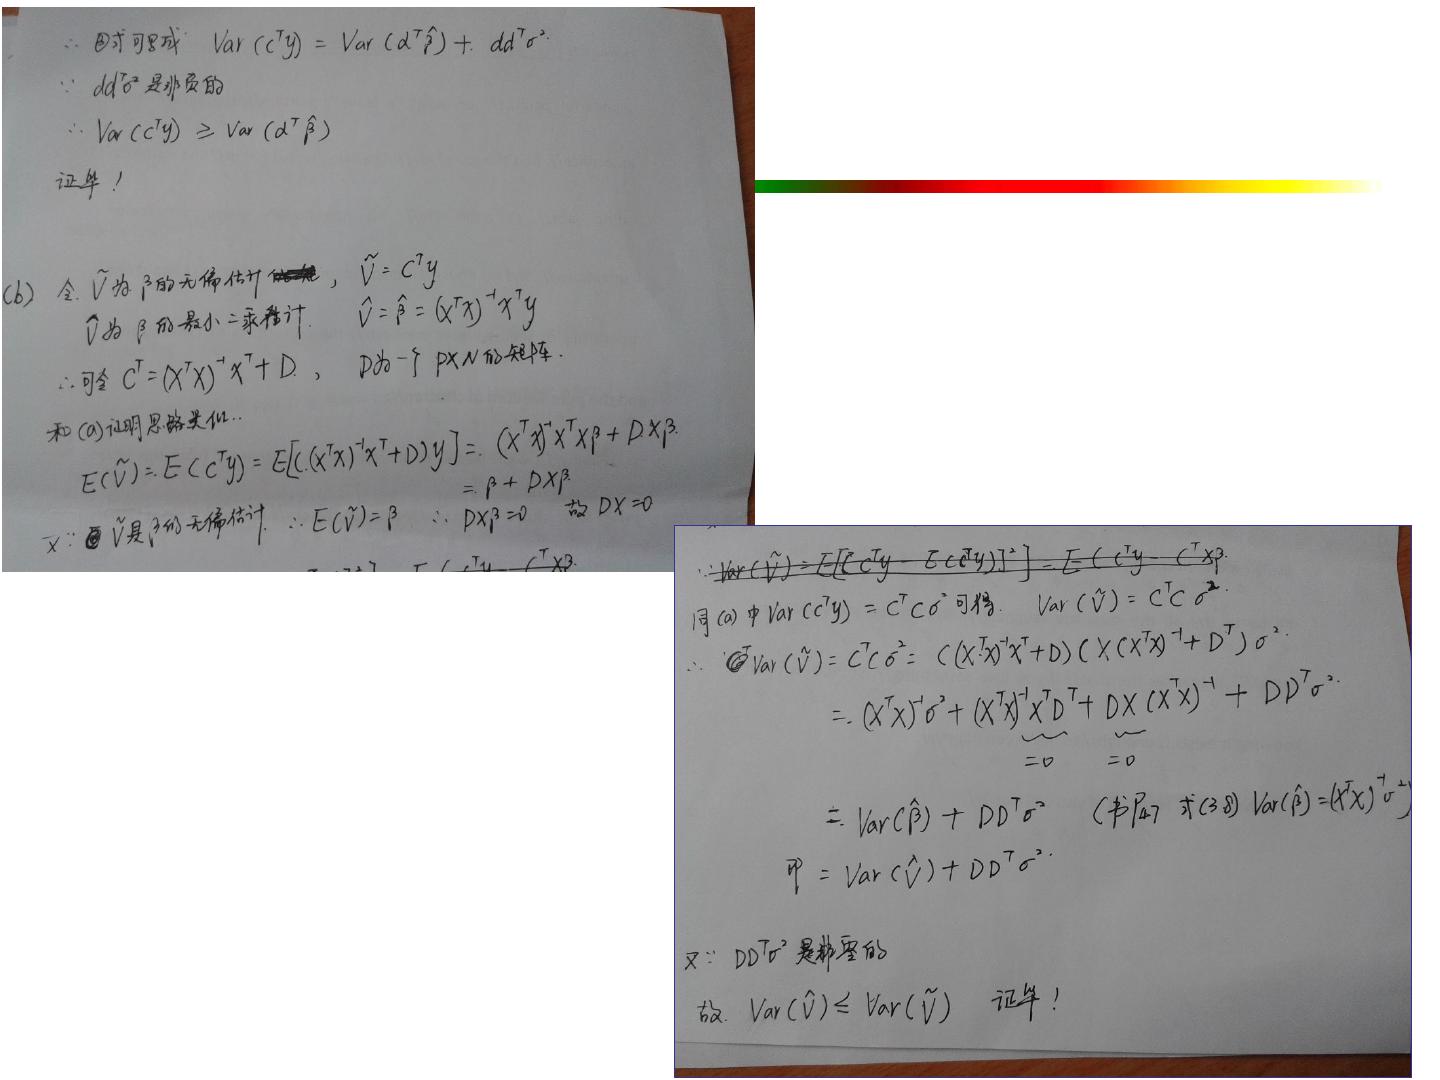 ∴ ②式可写成 Var(cᵀy) = Var(αᵀβ̂) + ddᵀσ².
∵ ddᵀσ² 是非负的
∴ Var(cᵀy) ≥ Var(αᵀβ̂)
证毕！
(b) 令 Ṽ为 β的无偏估计, Ṽ = Cᵀy
V̂为 β 的最小二乘估计. V̂ = β̂ = (XᵀX)⁻¹Xᵀy
∴可令 Cᵀ = (XᵀX)⁻¹Xᵀ + D, D为一个 P×N的矩阵.
和(a)证明思路类似..
E(Ṽ) = E(Cᵀy) = E[((XᵀX)⁻¹Xᵀ+D)y] = (XᵀX)⁻¹XᵀXβ + DXβ.
= β + DXβ.
又∵ Ṽ是β的无偏估计. ∴ E(Ṽ) = β ∴ DXβ=0 故 DX=0
∴ Var(Ṽ) = E[(Cᵀy − E(Cᵀy))²] = E( Cᵀy − CᵀXβ.
同(a)中Var(cᵀy) = CᵀCσ² 可得. Var(Ṽ) = CᵀCσ².
∴ Var(Ṽ) = CᵀCσ² = ((XᵀX)⁻¹Xᵀ+D)(X(XᵀX)⁻¹+Dᵀ)σ².
= (XᵀX)⁻¹σ² + (XᵀX)⁻¹XᵀDᵀ + DX(XᵀX)⁻¹ + DDᵀσ².
=0 =0
= Var(β̂) + DDᵀσ² (书P47 式(3.8) Var(β̂)=(XᵀX)⁻¹σ²)
即 = Var(V̂) + DDᵀσ².
又∵ DDᵀσ² 是非零的
故. Var(V̂) ≤ Var(Ṽ) 证毕！